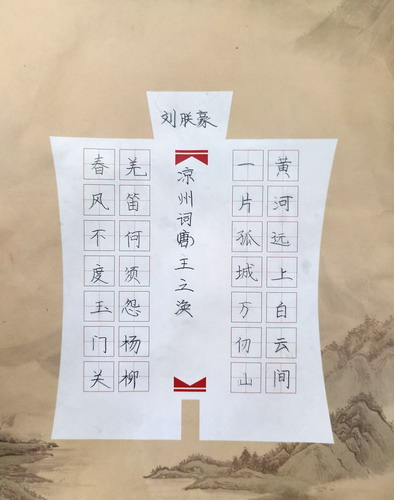 刘朕豪
黄河远上白云间
一片孤城万仞山
凉州词唐王之涣
羌笛何须怨杨柳
春风不度玉门关